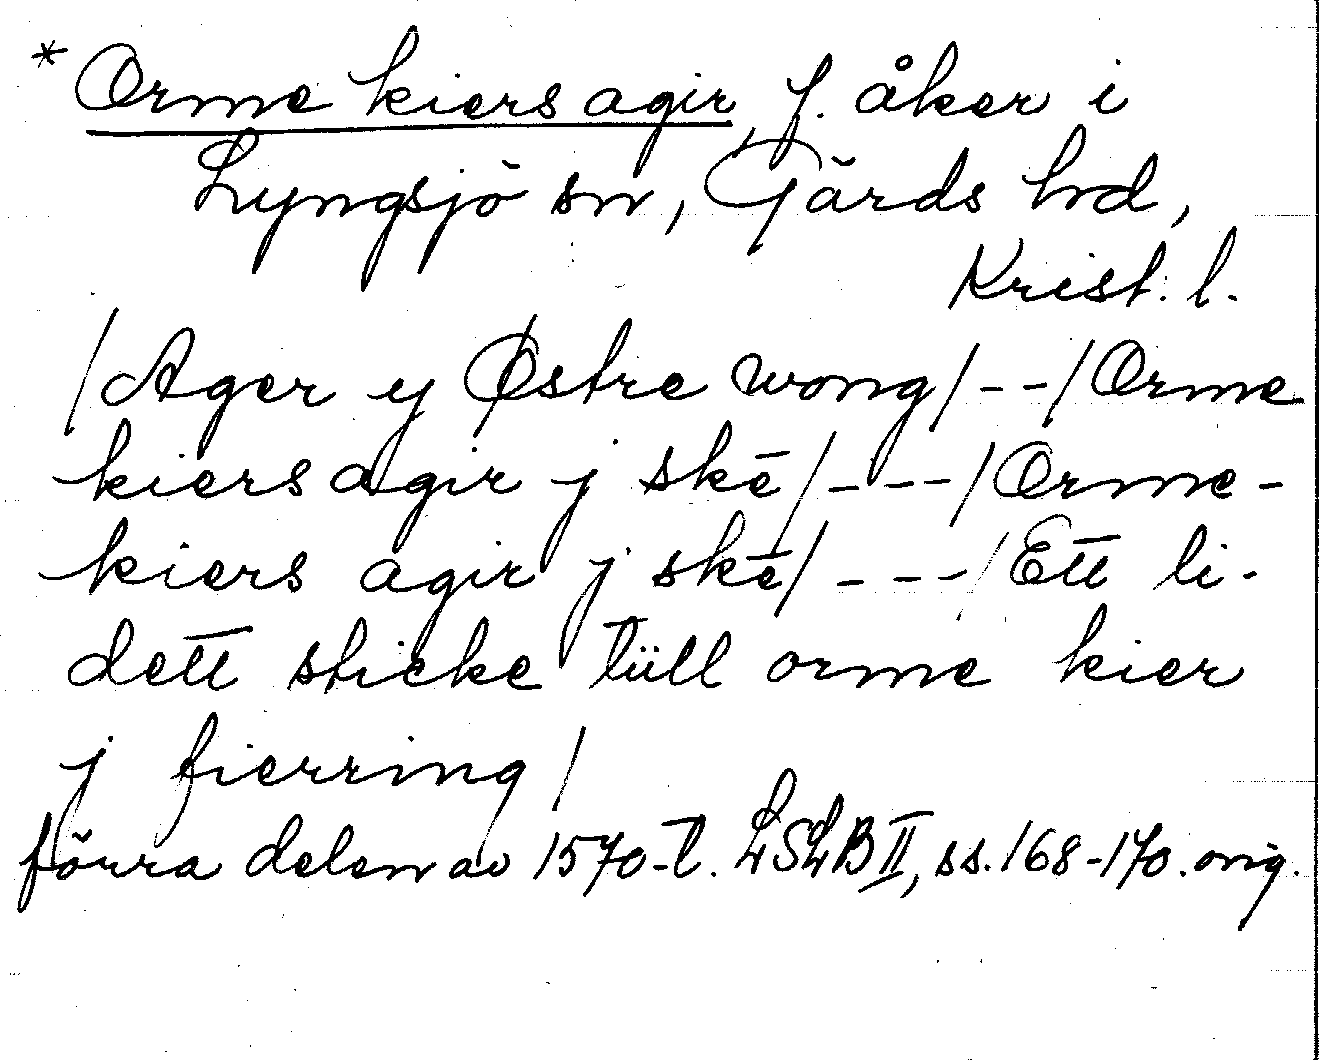 * Orme kiers agir, f. åker i
Lyngsjö sn, Gärds hd,
Krist. l.
/Ager y Østre wong/--/Orme
kiers agir j skē/---/Orme-
kiers agir j skē/---/Ett li-
dett sticke tüll orme kier
j fierring/
förra delen av 1570-t. LSLB II, ss. 168-170. orig.